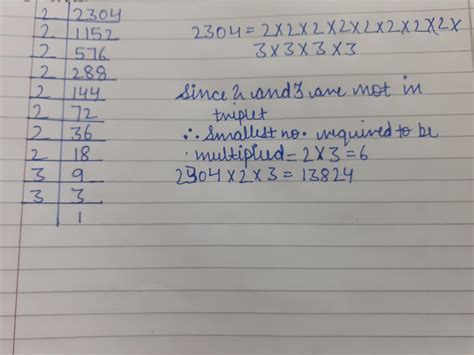 2 2304
2 1152
2 576
2 288
2 144
2 72
2 36
2 18
3 9
3 3
1
2304 = 2X2X2X2X2X2X2X2X
3X3X3X3
Since 2 and 3 are not in
triplet
∴ Smallest no. required to be
multiplied = 2X3 = 6
2304X2X3 = 13824